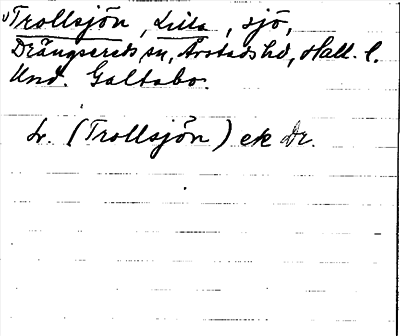 Trollsjön, Lilla, sjö,
Drängsereds sn, Årstads hd, Hall. l.
Und. Galtabo.
L. (Trollsjön) ek Dr.